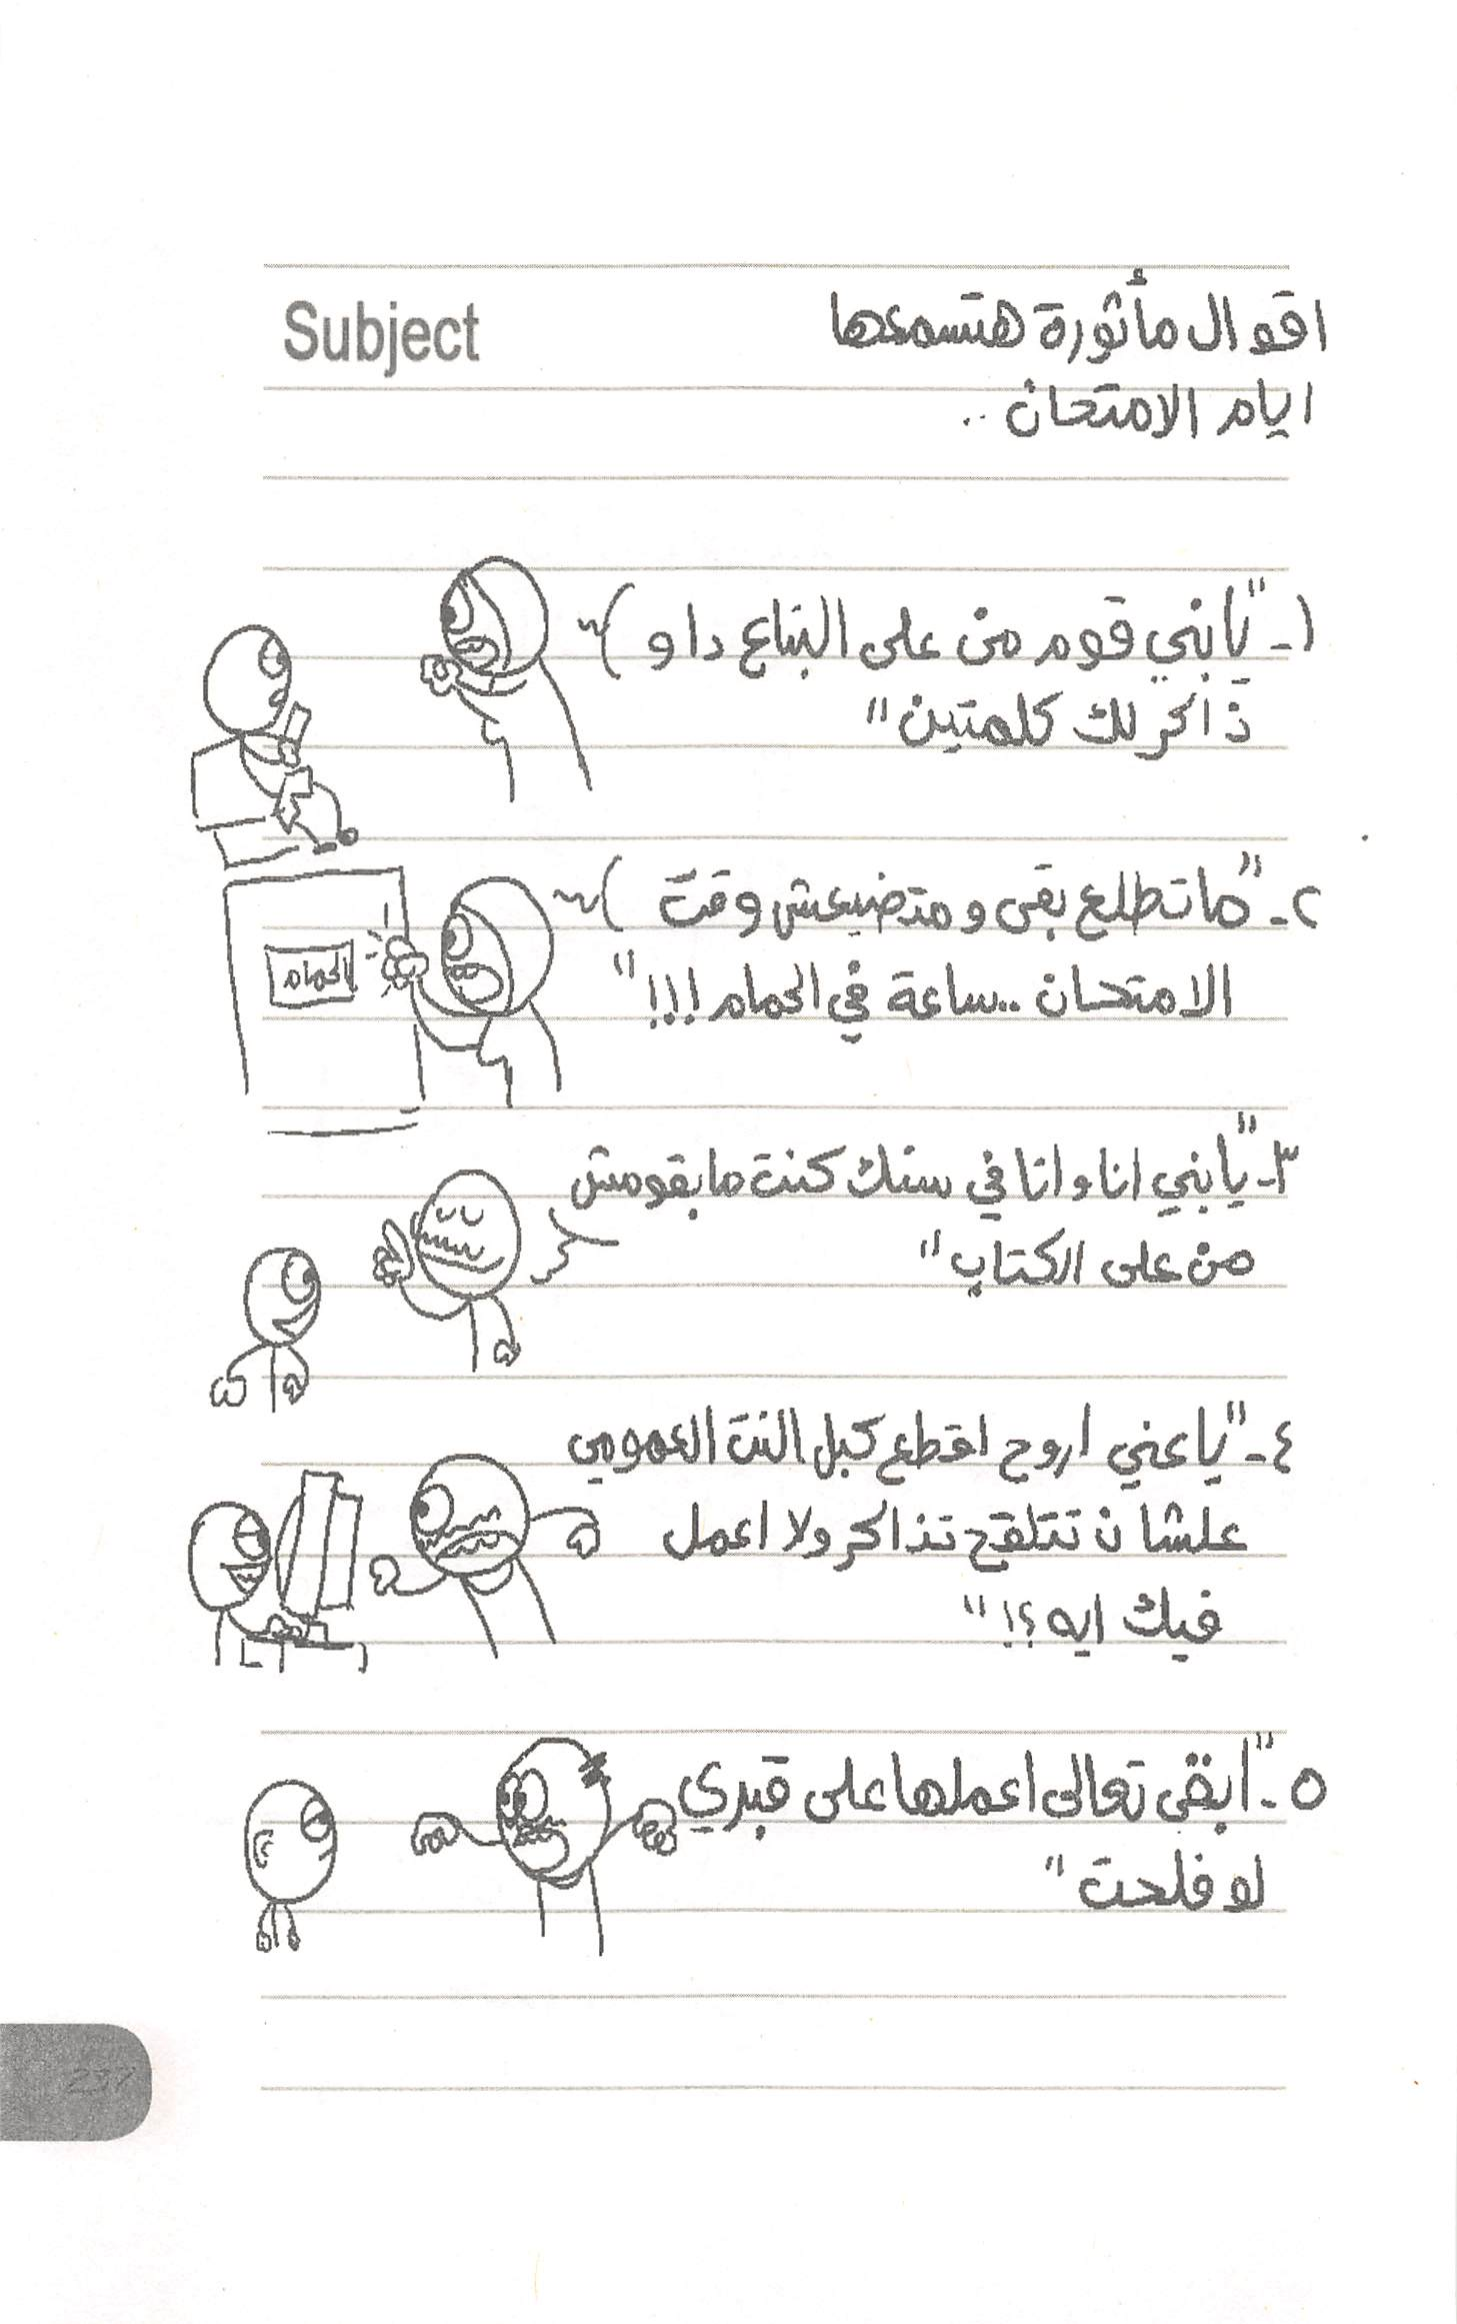 Subject
اقوال مأثورة هتسمعها
ايام الامتحان ..
١- "يابني قوم من على البتاع دا و
ذاكر لك كلمتين"
٢- "ما تطلع بقى و متضيعش وقت
الامتحان .. ساعة في الحمام !!!"
الحمام
٣- "يابني انا وانا في سنك كنت ما بقومش
من على الكتاب"
٤- "يا عني اروح اقطع كبل النت العمومي
علشان تتلقح تذاكر ولا اعمل
فيك ايه ؟!"
٥- "ابقى تعالى اعملها على قبري
لو فلحت"
237